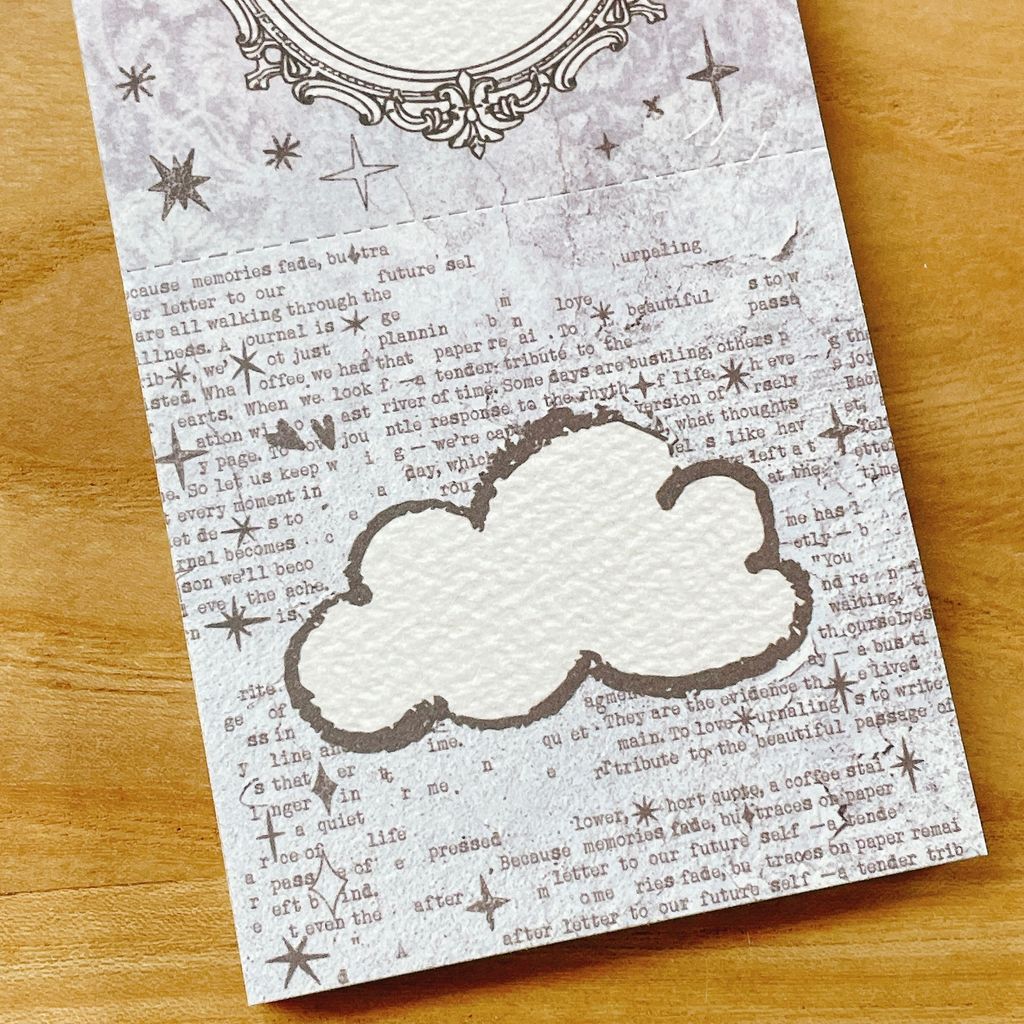 cause memories fade, bu tra
future sel
urnaling
er letter to our
are all walking through the
m love beautiful s to w
llness. A journal is ge
plannin b n passa
ib , we' ot just
that paper re ai. To
sted. Wha offee we had
f —a tender tribute to the
g th
earts. When we look
river of time. Some days are bustling, others p
e joy
ation wi so ast
ntle response to the rhyth f life. h eve
Each
y page. To ow jou
g — we're cap version of rsely
et,
e. So let us keep w i
day, which what thoughts
fel
every moment in a rou
el s like hav left a t ette
et de s to e
at the time
nal becomes c
me has l
son we'll beco
etly — b
eve the ache.
"You
n is,
nd re n
waiting, t
th ourselves
ay — a bus ti
rite. agmen
They are the evidence th e lived
ge of
main. To love urnaling s to write
ss in
y line and ime. qu et
r tribute to the beautiful passage of
s that er t n e
inger in r me.
lower, hort quote, a coffee stai
a quiet
Because memories fade, bu traces on paper
r ce of life pressed
a pass e of e
letter to our future self —a tende
r eft b ind.
m ome ries fade, bu traces on paper remai
e t even the after
after letter to our future self —a tender trib
". A
d